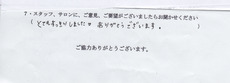 7・スタッフ、サロンに、ご意見、ご要望がございましたらお聞かせください
(とてもすっきりしました。ありがとうございます。)
ご協力ありがとうございます。